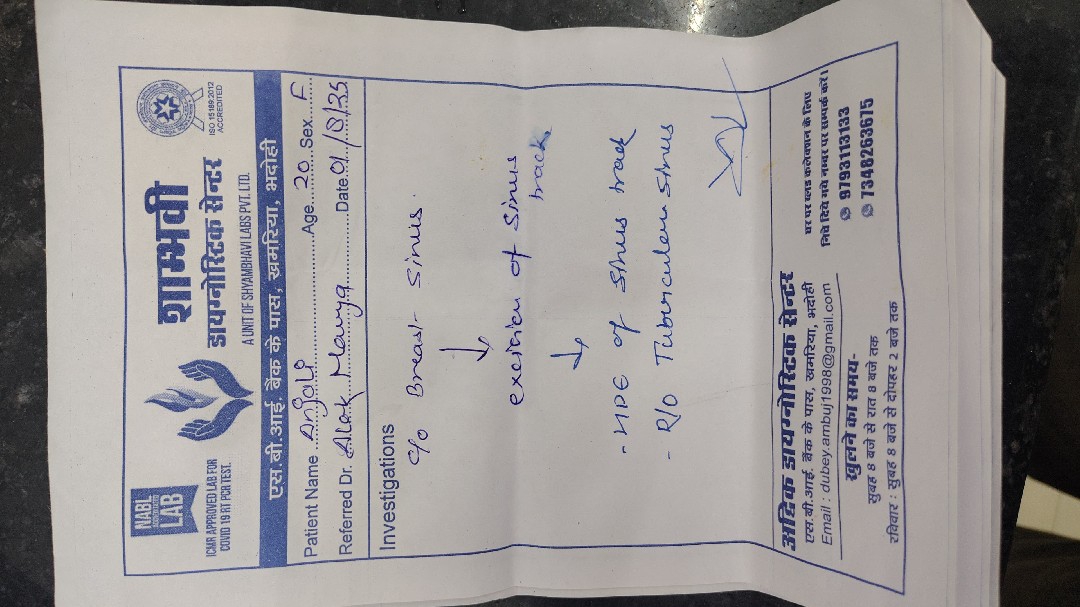 NABL
ACCREDITED
LAB
ICMR APPROVED LAB FOR
COVID 19 RT PCR TEST.
शाम्भवी
डायग्नोस्टिक सेन्टर
A UNIT OF SHYAMBHAVI LABS PVT. LTD.
ISO 15189:2012
ACCREDITED
एस.बी.आई. बैंक के पास, खमरिया, भदोही
Patient Name Anjali Age 20 Sex F
Referred Dr. Alok Maurya Date 01/8/25
Investigations
c/o Breast Sinus.
↓
excision of Sinus
track
↓
- HPE of Sinus track
- R/O Tuberculous Sinus
अद्विक डायग्नोस्टिक सेन्टर
एस.बी.आई. बैंक के पास, खमरिया, भदोही
Email : dubey.ambuj1998@gmail.com
खुलने का समय-
सुबह 8 बजे से रात 8 बजे तक
रविवार : सुबह 8 बजे से दोपहर 2 बजे तक
घर पर ब्लड कलेक्शन के लिए
निचे दिये गये नम्बर पर सम्पर्क करें।
9793113133
7348263675